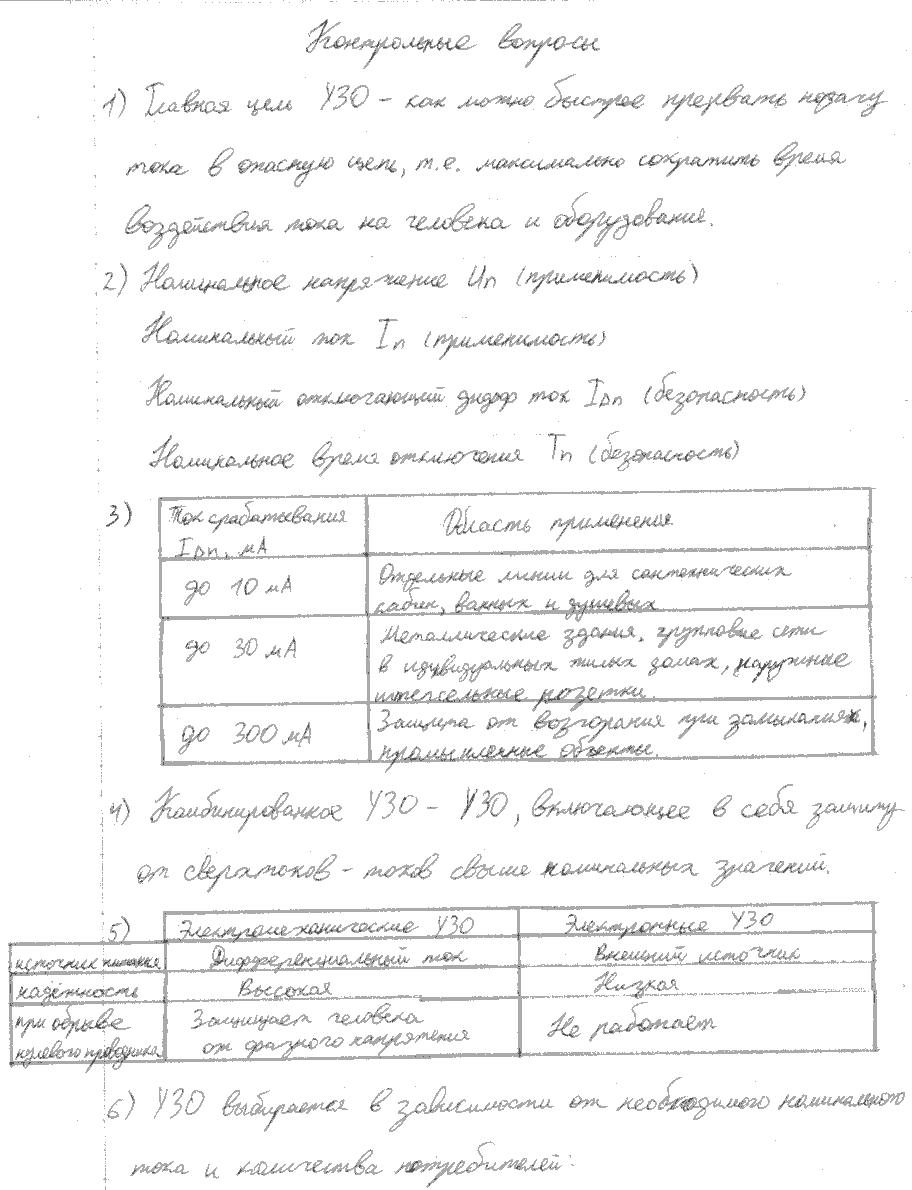 Контрольные вопросы
1) Главная цель УЗО – как можно быстрое прервать подачу
тока в опасную цепь, т.е. максимально сократить время
воздействия тока на человека и оборудования.
2) Номинальное напряжение Un (применимость)
Номинальный ток In (применимость)
Номинальный отключающий дифф ток IΔn (безопасность)
Номинальное время отключения Tn (безопасность)
3) Ток срабатывания IΔn, мА
Область применения
до 10 мА
Отдельные линии для сантехнических
кабин, ванных и душевых
до 30 мА
Металлические здания, групповые сети
в идувидуальных жилых домах, наружные
штепсельные розетки.
до 300 мА
Защита от возгорания при замыканиях,
промышленные объекты.
4) Комбинированное УЗО – УЗО, включающее в себя защиту
от сверхтоков – токов свыше номинальных значений.
5) Электромеханические УЗО
Электронные УЗО
источник питания
Дифференциальный ток
Внешний источник
надёжность
Высокая
Низкая
при обрыве
нулевого проводника
Защищает человека
от фазного напряжения
Не работает
6) УЗО выбирается в зависимости от необходимого номинального
тока и количества потребителей.